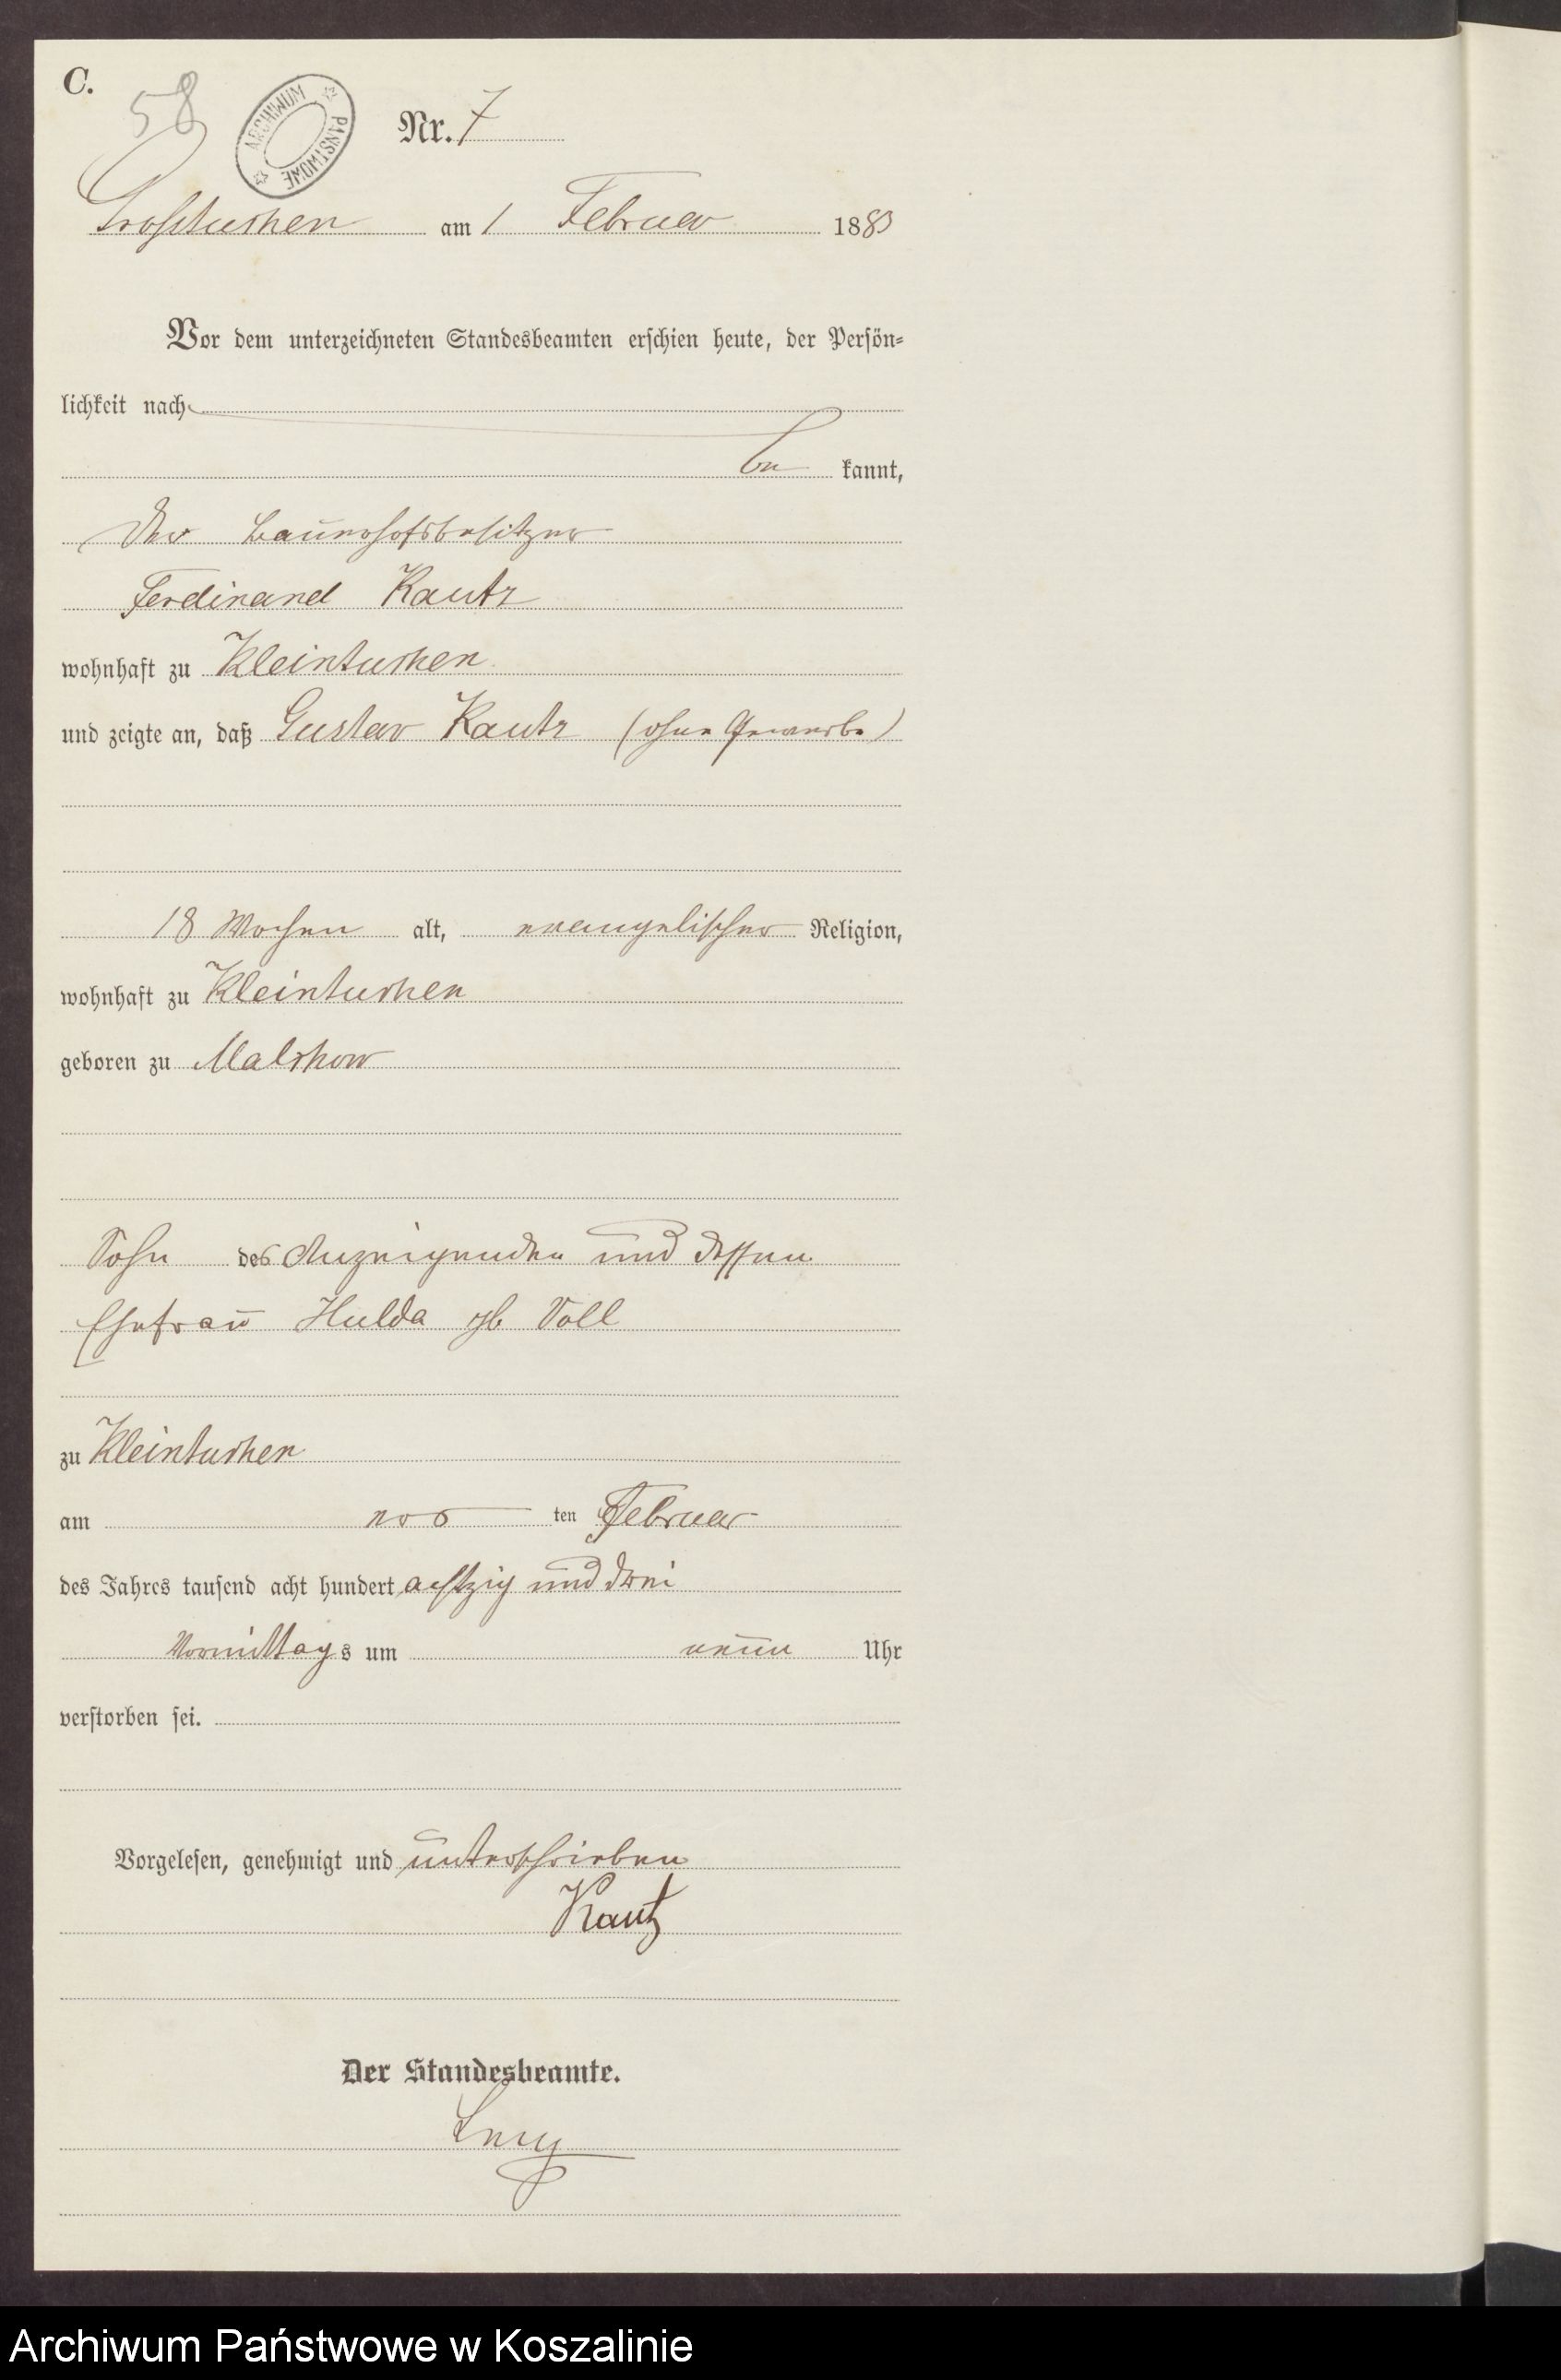 C.
58
ARCHIWUM PAŃSTWOWE
Nr. 7
Grosstuchen am 1 Februar 1883
Vor dem unterzeichneten Standesbeamten erschien heute, der Persön-
lichkeit nach
be kannt,
Der Bauerhofsbesitzer
Ferdinand Kautz
wohnhaft zu Kleintuchen
und zeigte an, daß Gustav Kautz (ohne Gewerbe)
18 Wochen alt, evangelischer Religion,
wohnhaft zu Kleintuchen
geboren zu
Sohn des Anzeigenden und dessen
Ehefrau Hulda gb Voll
zu Kleintuchen
am ersten Februar
des Jahres tausend acht hundert achtzig und drei
Vormittags um neun Uhr
verstorben sei.
Vorgelesen, genehmigt und unterschrieben
Kautz
Der Standesbeamte.
Archiwum Państwowe w Koszalinie